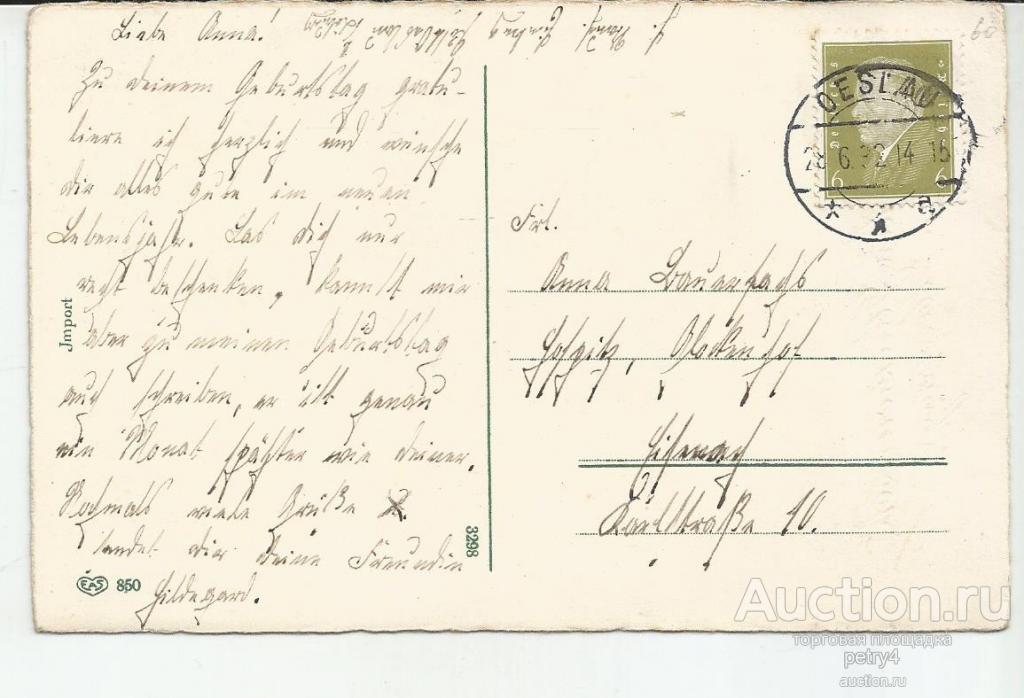 Liebe Anna!
Zu deinem Geburtstag gratu-
liere ich herzlich und wünsche
dir alles gute im neuen
Lebensjahr. Las dich nur
recht beschenken, kannst mir
aber zu meinen Geburtstag
auch schreiben, er ist genau
ein Monat später wie deiner.
Nochmals viele Grüße
sendet dir deine Freundin
Hildegard.
EAS 850
Jmport
3298
60
OESLAU
28.6.32.14-15
* a
Deutsches Reich
6 6
Frl.
Anna Bauersachs
Hospitz,
Eisenach
Karlstraße 10.
Auction.ru
торговая площадка
petry4
auction.ru